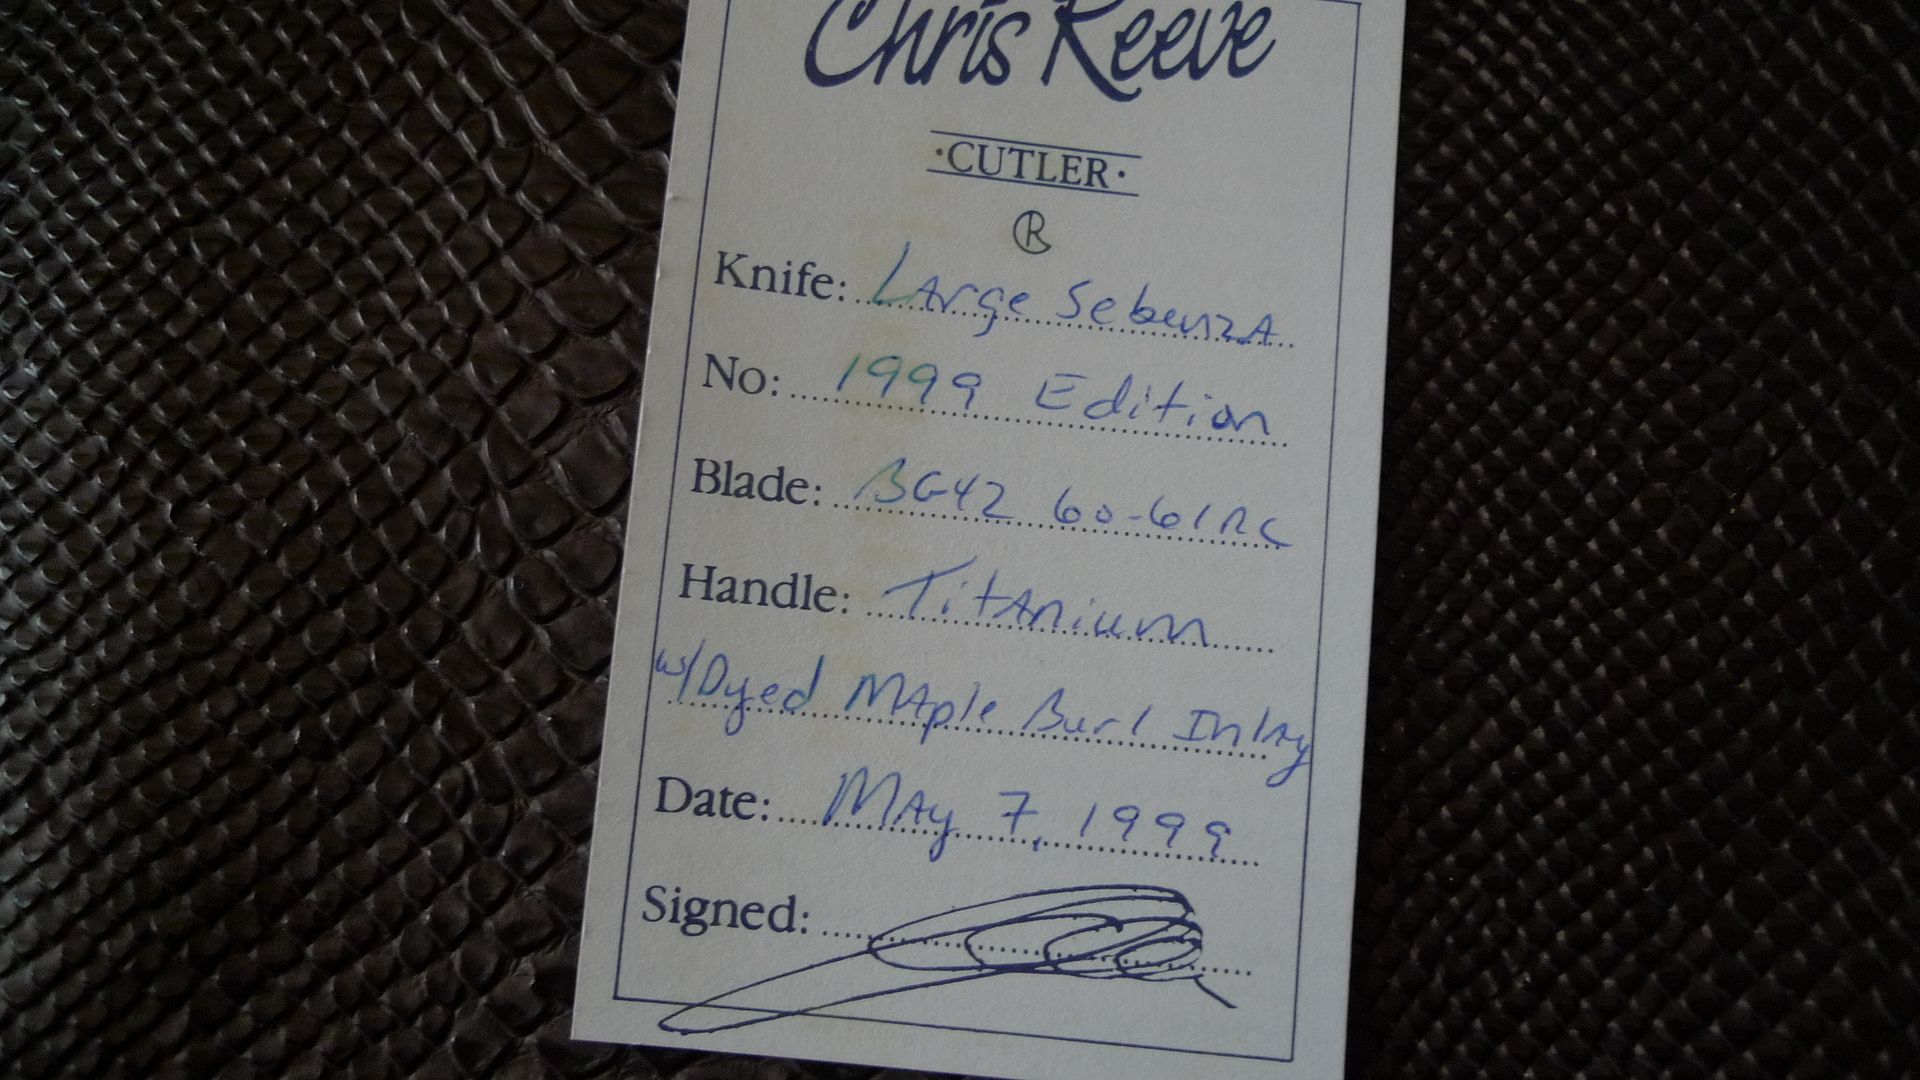 Chris Reeve
·CUTLER·
Knife: Large Sebenza
No: 1999 Edition
Blade: BG42 60-61RC
Handle: Titanium
w/Dyed Maple Burl Inlay
Date: May 7, 1999
Signed: